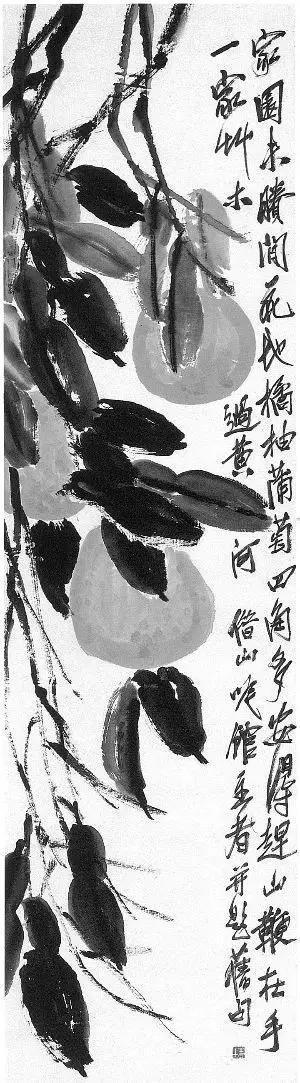 家園未賸閒花地橘柚葡萄四角多安得趕山鞭在手
一家艸木過黃河 借山吟館主者并題舊句